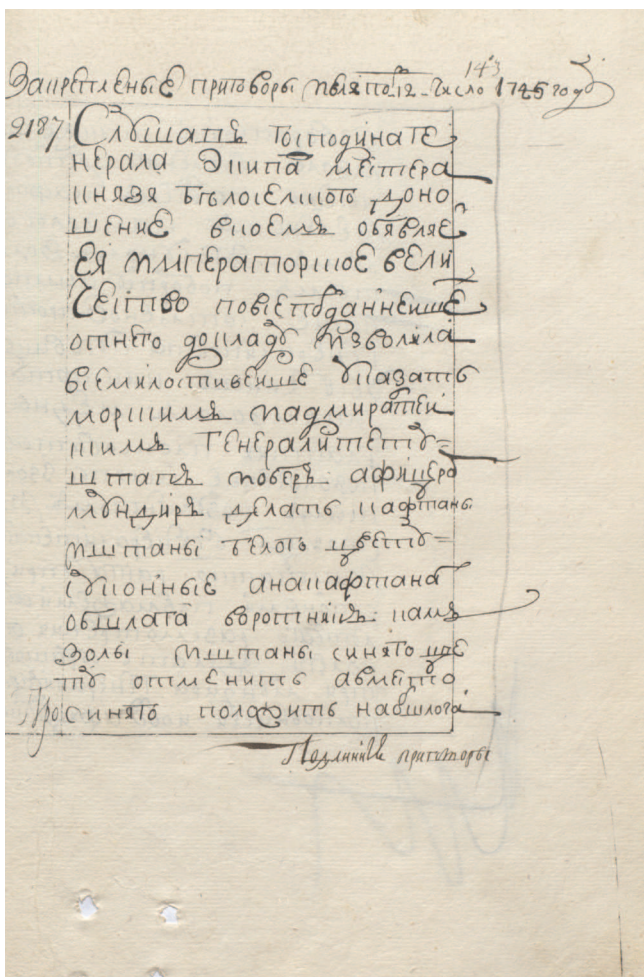 143
Закрепленые приговоры июля по 12 число 1745 году
2187 Слушанъ господина ге
нерала Экипа меистера
князя Белоселского доно
шение в коемъ обявляе
ЕЯ императорское вели
чество повсеподданнеише
от него докладу изволила
всемилостивеише указать
морскимъ и адмиралтеи
скимъ генералитету
штапъ и оберъ афицеро
мундиръ делать кафтаны
и штаны белого цвету
суконные а на кафтана
обшлага воротникъ кам
золы и штаны синего цве
ту отменить а вместо
синяго положить на обшлага
Подлинные приговоры